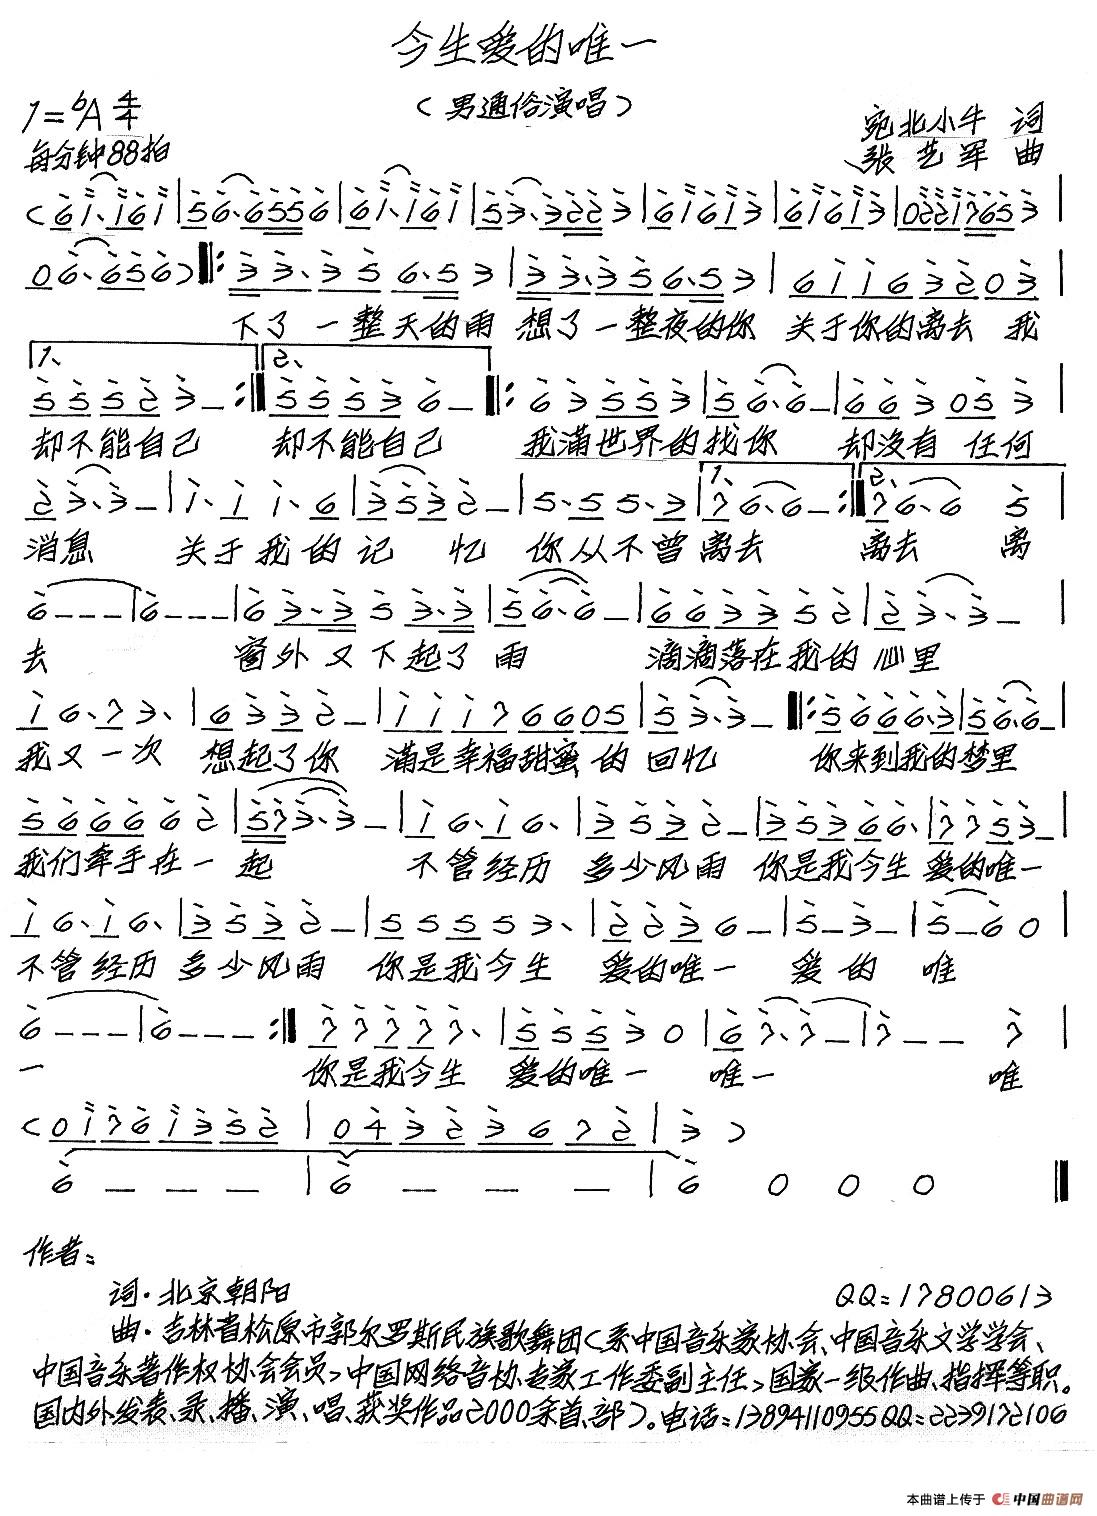 今生爱的唯一
(男通俗演唱)
1=bA 4/4
宛北小牛 词
每分钟88拍
张艺军 曲
下了一整天的雨 想了一整夜的你 关于你的离去 我
1、 2、
却不能自己 却不能自己 我满世界的找你 却没有 任何
1、 2、
消息 关于我的记忆 你从不曾离去 离去 离
去 窗外又下起了雨 滴滴落在我的心里
我又一次 想起了你 满是幸福甜蜜的回忆 你来到我的梦里
我们牵手在一起 不管经历 多少风雨 你是我今生 爱的唯一
不管经历 多少风雨 你是我今生 爱的唯一 爱的 唯
一 你是我今生 爱的唯一 唯一 唯
作者:
词·北京朝阳 QQ:17800613
曲·吉林省松原市郭尔罗斯民族歌舞团(系中国音乐家协会、中国音乐文学学会、
中国音乐著作权协会会员>中国网络音协专家工作委副主任>国家一级作曲、指挥等职。
国内外发表、录、播、演、唱、获奖作品2000余首、部)。电话:13894110955QQ:2239172106
本曲谱上传于 中国曲谱网